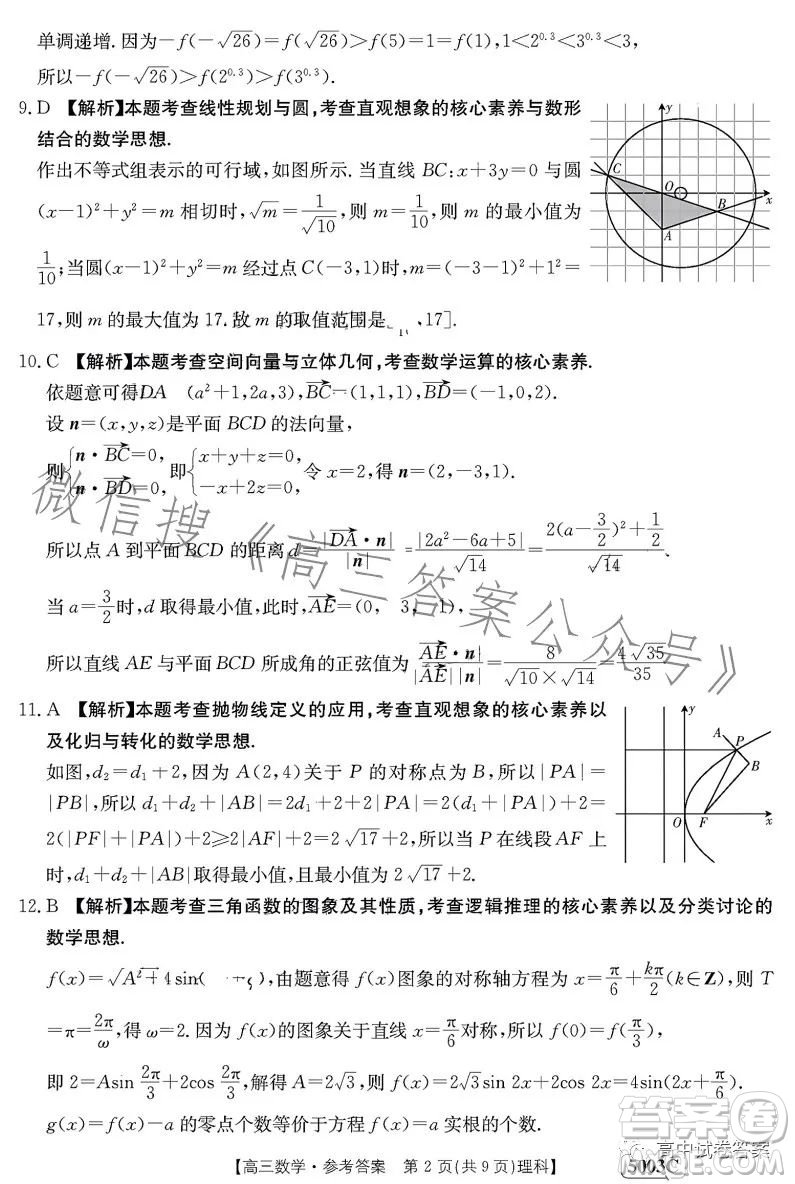 单调递增. 因为-f(-√26)=f(√26)>f(5)=1=f(1), 1<2^0.3<3^0.3<3,
所以-f(-√26)>f(2^0.3)>f(3^0.3).
9. D 【解析】本题考查线性规划与圆,考查直观想象的核心素养与数形
结合的数学思想.
作出不等式组表示的可行域,如图所示. 当直线 BC:x+3y=0 与圆
(x-1)²+y²=m 相切时,√m=1/√10,则 m=1/10,则 m 的最小值为
1/10;当圆(x-1)²+y²=m 经过点 C(-3,1)时,m=(-3-1)²+1²=
17,则 m 的最大值为 17. 故 m 的取值范围是 ,17].
y
C
O
x
B
A
10. C 【解析】本题考查空间向量与立体几何,考查数学运算的核心素养.
依题意可得DA (a²+1,2a,3),BC=(1,1,1),BD=(-1,0,2).
设 n=(x,y,z)是平面 BCD 的法向量,
则{n·BC=0, n·BD=0, 即{x+y+z=0, -x+2z=0. 令 x=2,得 n=(2,-3,1).
所以点 A 到平面 BCD 的距离 d=|DA·n|/|n|=|2a²-6a+5|/√14=(2(a-3/2)²+1/2)/√14.
当 a=3/2时,d 取得最小值,此时,AE=(0, 3, 1).
所以直线 AE 与平面 BCD 所成角的正弦值为|AE·n|/(|AE||n|)=8/(√10×√14)=4√35/35
11. A 【解析】本题考查抛物线定义的应用,考查直观想象的核心素养以
及化归与转化的数学思想.
如图,d₂=d₁+2,因为 A(2,4)关于 P 的对称点为 B,所以|PA|=
|PB|,所以 d₁+d₂+|AB|=2d₁+2+2|PA|=2(d₁+|PA|)+2=
2(|PF|+|PA|)+2⩾2|AF|+2=2√17+2,所以当 P 在线段 AF 上
时,d₁+d₂+|AB|取得最小值,且最小值为 2√17+2.
y
A
P
B
O
F
x
12. B 【解析】本题考查三角函数的图象及其性质,考查逻辑推理的核心素养以及分类讨论的
数学思想.
f(x)=√(A²+4)sin( ),由题意得 f(x)图象的对称轴方程为 x=π/6+kπ/2(k∈Z),则 T
=π=2π/ω,得 ω=2. 因为 f(x)的图象关于直线 x=π/6对称,所以 f(0)=f(π/3),
即 2=Asin 2π/3+2cos 2π/3,解得 A=2√3,则 f(x)=2√3sin 2x+2cos 2x=4sin(2x+π/6).
g(x)=f(x)-a 的零点个数等价于方程 f(x)=a 实根的个数.
微信搜《高三答案公众号》
答案圈
高中试卷答案
【高三数学·参考答案 第 2 页(共 9 页)理科】
5003C